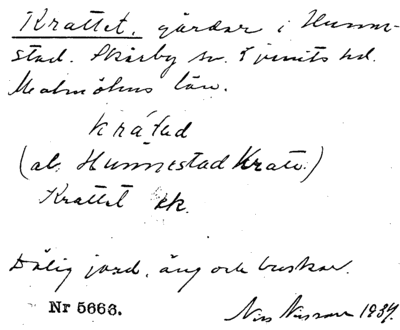 Krattet, gårdar i Hunne-
stad. Skårby sn. Ljunits hd.
Malmöhus län.
krátəd
(al. Hunnestad Kratt.)
Krattet ek.
Dålig jord, äng och buskar.
Nr 5663. Nils Nilsson 1934.